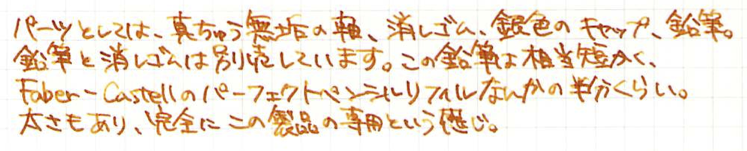 パーツとしては、真ちゅう無垢の軸、消しゴム、銀色のキャップ、鉛筆。
鉛筆と消しゴムは別売しています。この鉛筆は相当短かく、
Faber-Castellのパーフェクトペンシルリフィルなんかの半分くらい。
太さもあり、完全にこの製品の専用という感じ。